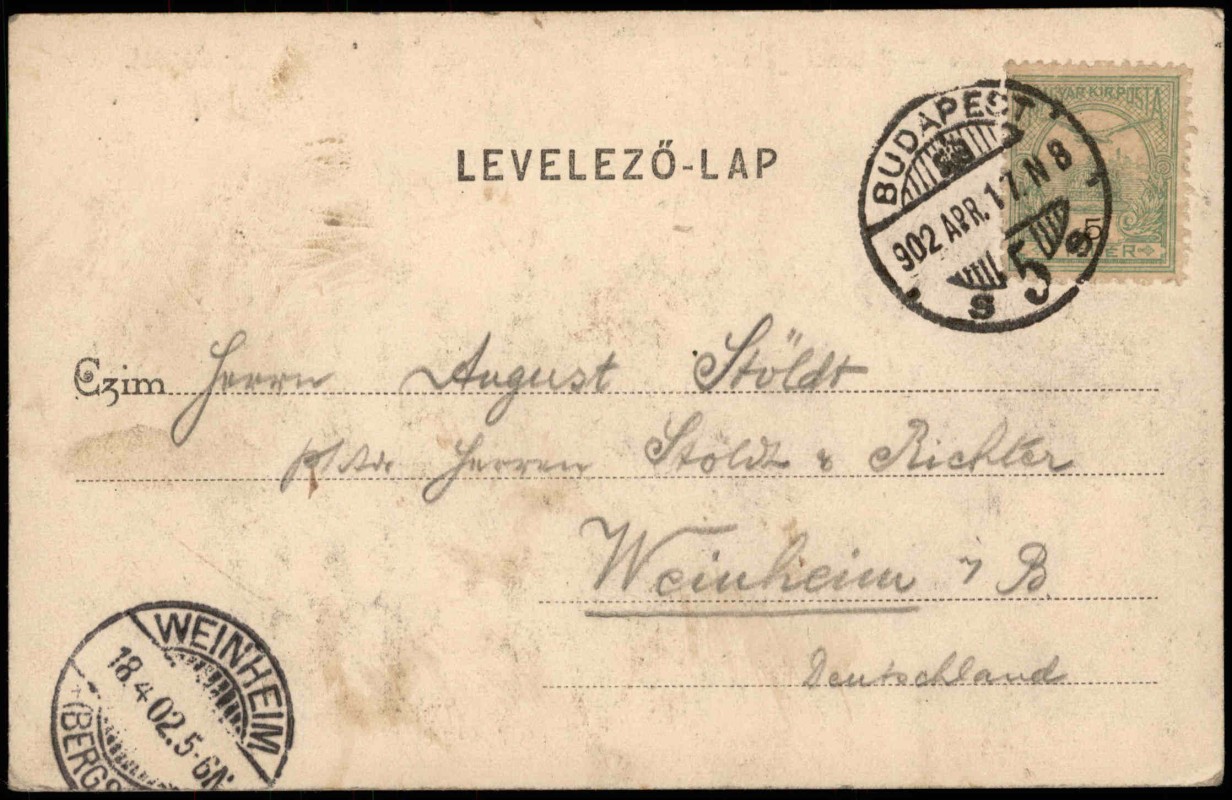 LEVELEZŐ-LAP
MAGYAR KIR. POSTA
5
BUDAPEST
902 APR. 17. N 8
S 5 8
Czim Herrn August Stöldt
Herren Stöldt & Richter
Weinheim / B.
Deutschland
WEINHEIM
18.4.02.5-6N.
(BERGS